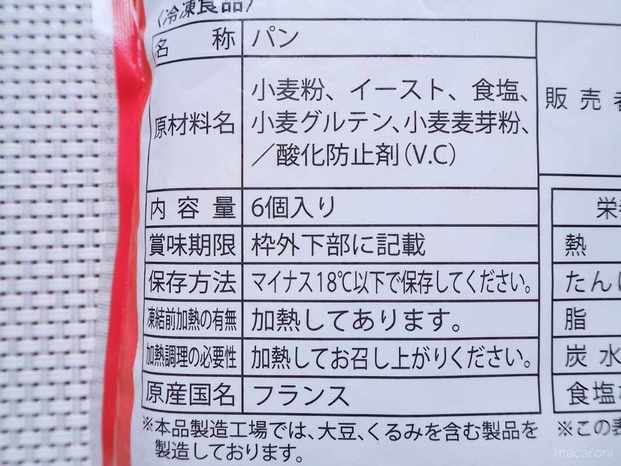 〈冷凍食品〉
名 称 パン
原材料名 小麦粉、イースト、食塩、
小麦グルテン、小麦麦芽粉、
／酸化防止剤（V.C）
販 売 者
内 容 量 6個入り
賞味期限 枠外下部に記載
保存方法 マイナス18℃以下で保存してください。
凍結前加熱の有無 加熱してあります。
加熱調理の必要性 加熱してお召し上がりください。
原産国名 フランス
※本品製造工場では、大豆、くるみを含む製品を
製造しております。
栄
熱
たんぱ
脂
炭 水
食塩
※この表
macaroni